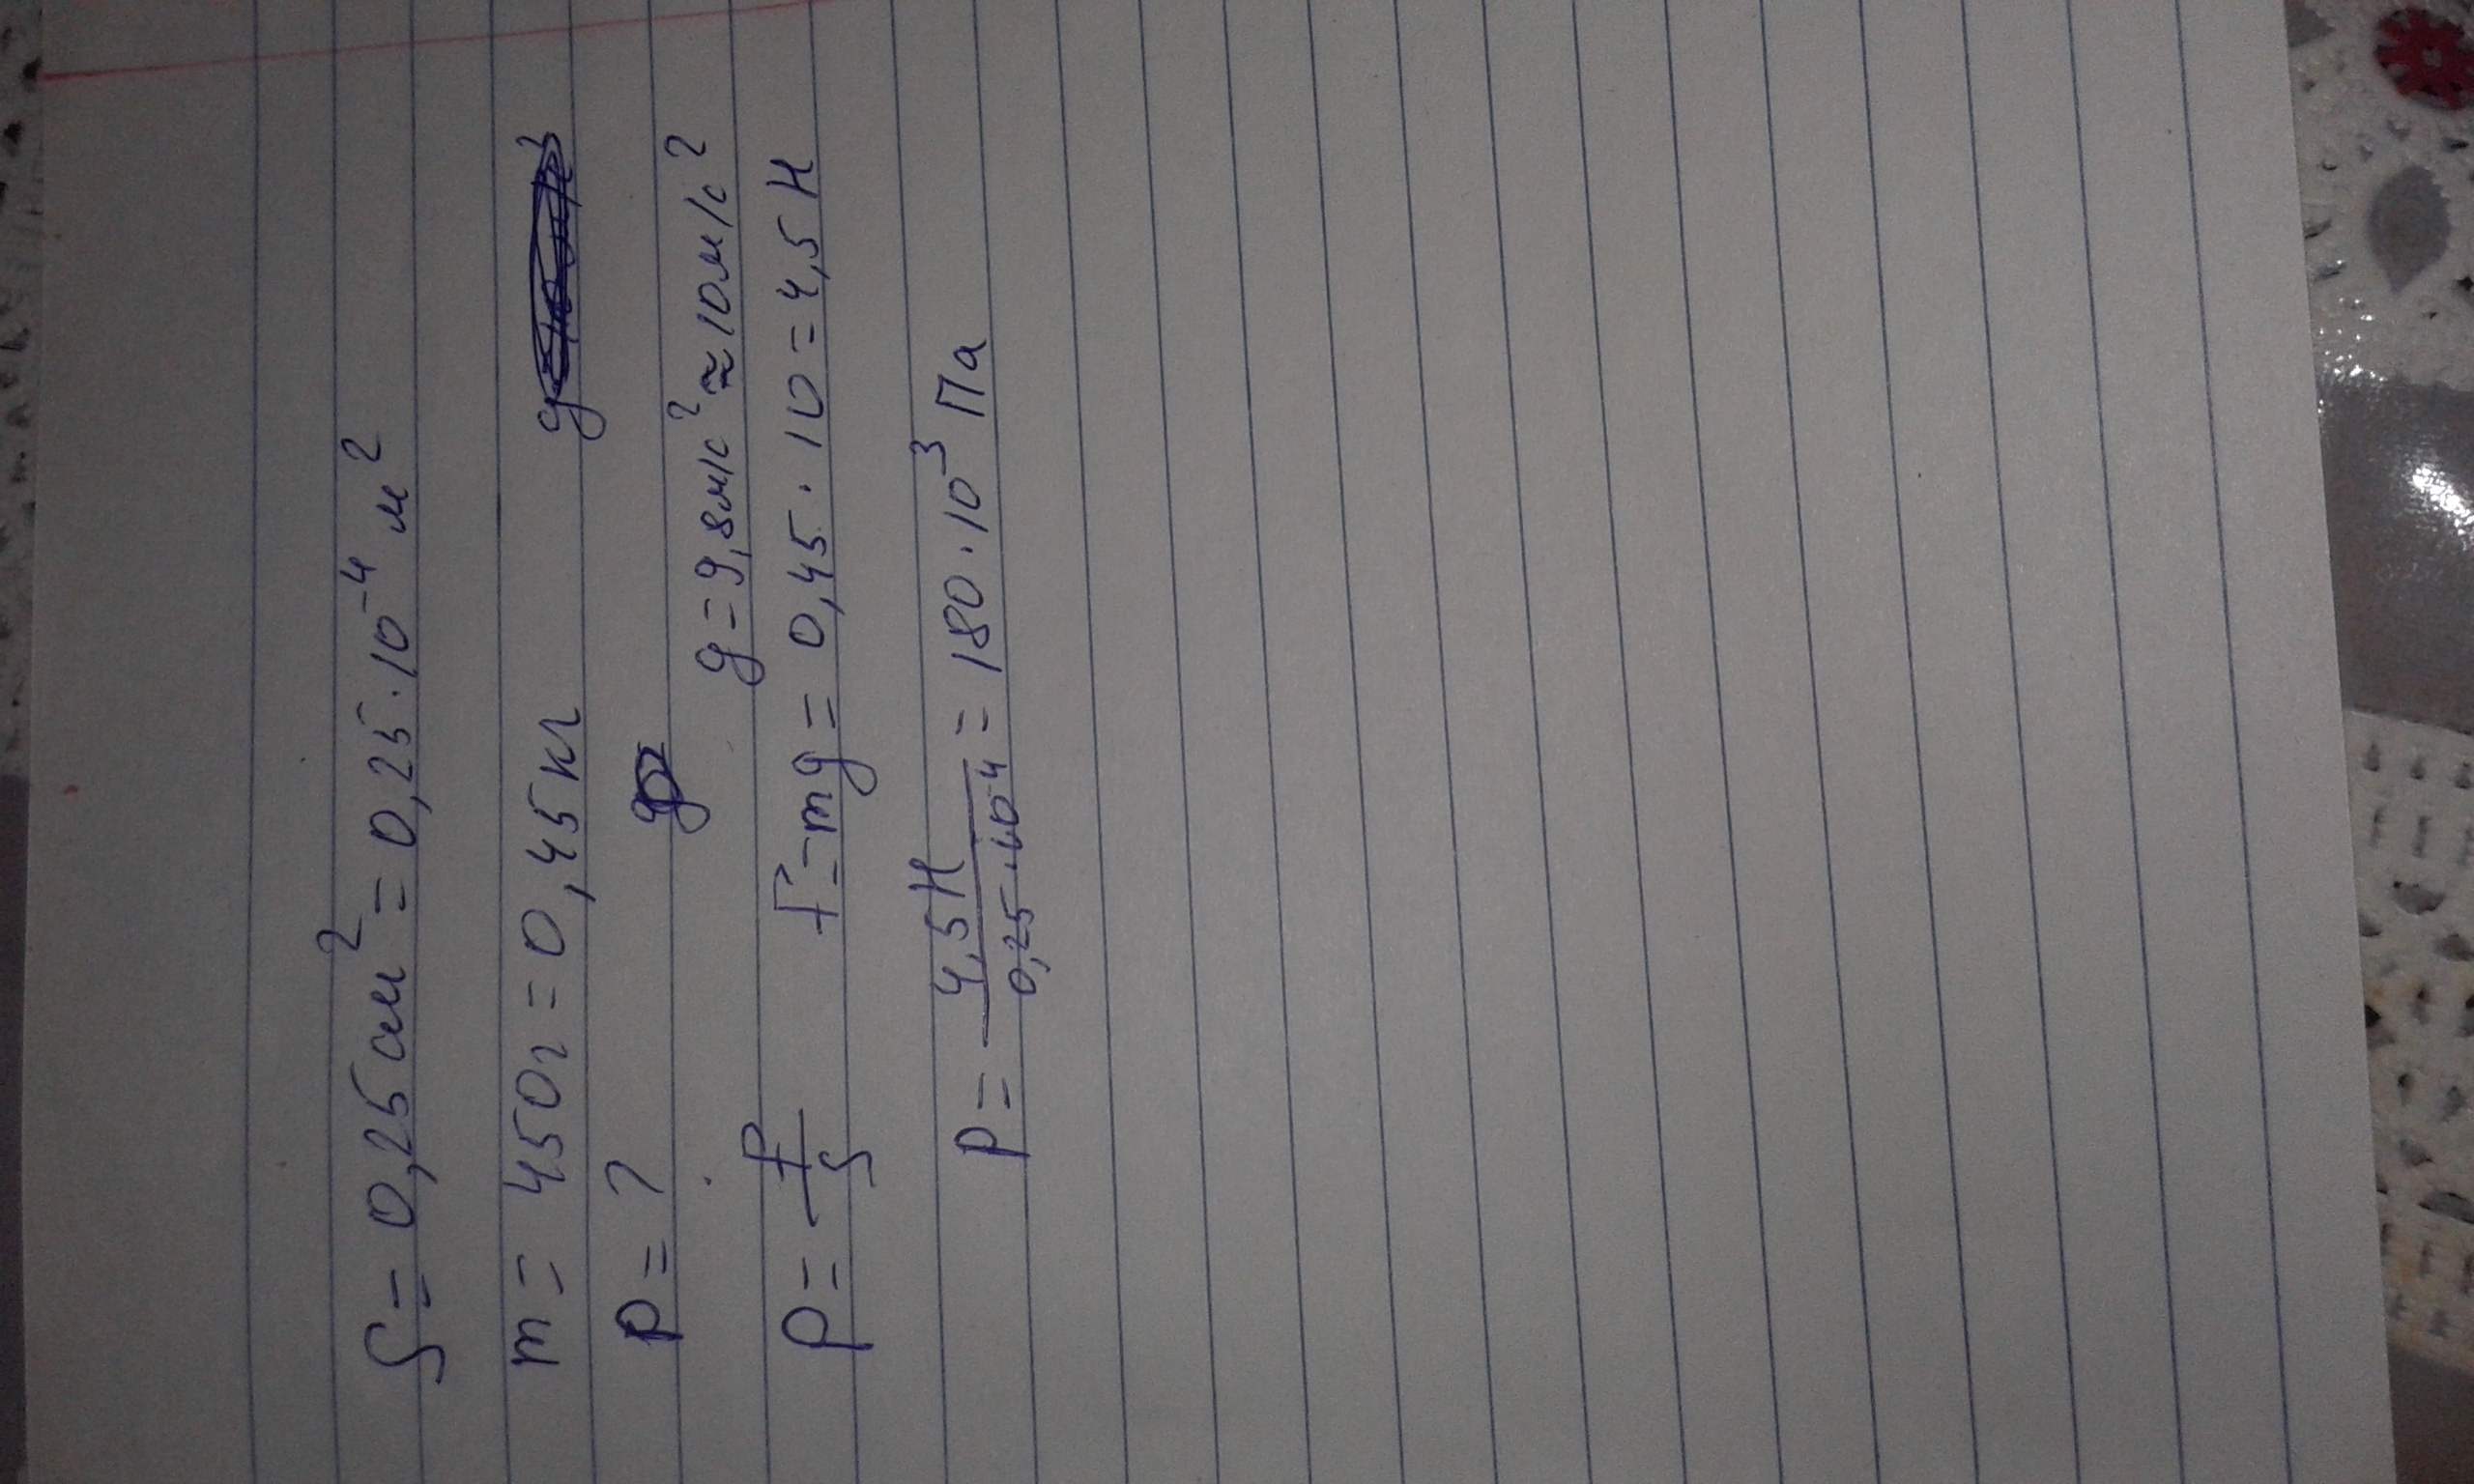 S = 0,25 см² = 0,25 · 10⁻⁴ м²
m = 450г = 0,45 кг
p = ?
g = 9,8 м/с² ≈ 10 м/с²
p = F/S F = mg = 0,45 · 10 = 4,5 Н
p = 4,5 Н / 0,25 · 10⁻⁴ = 180 · 10³ Па